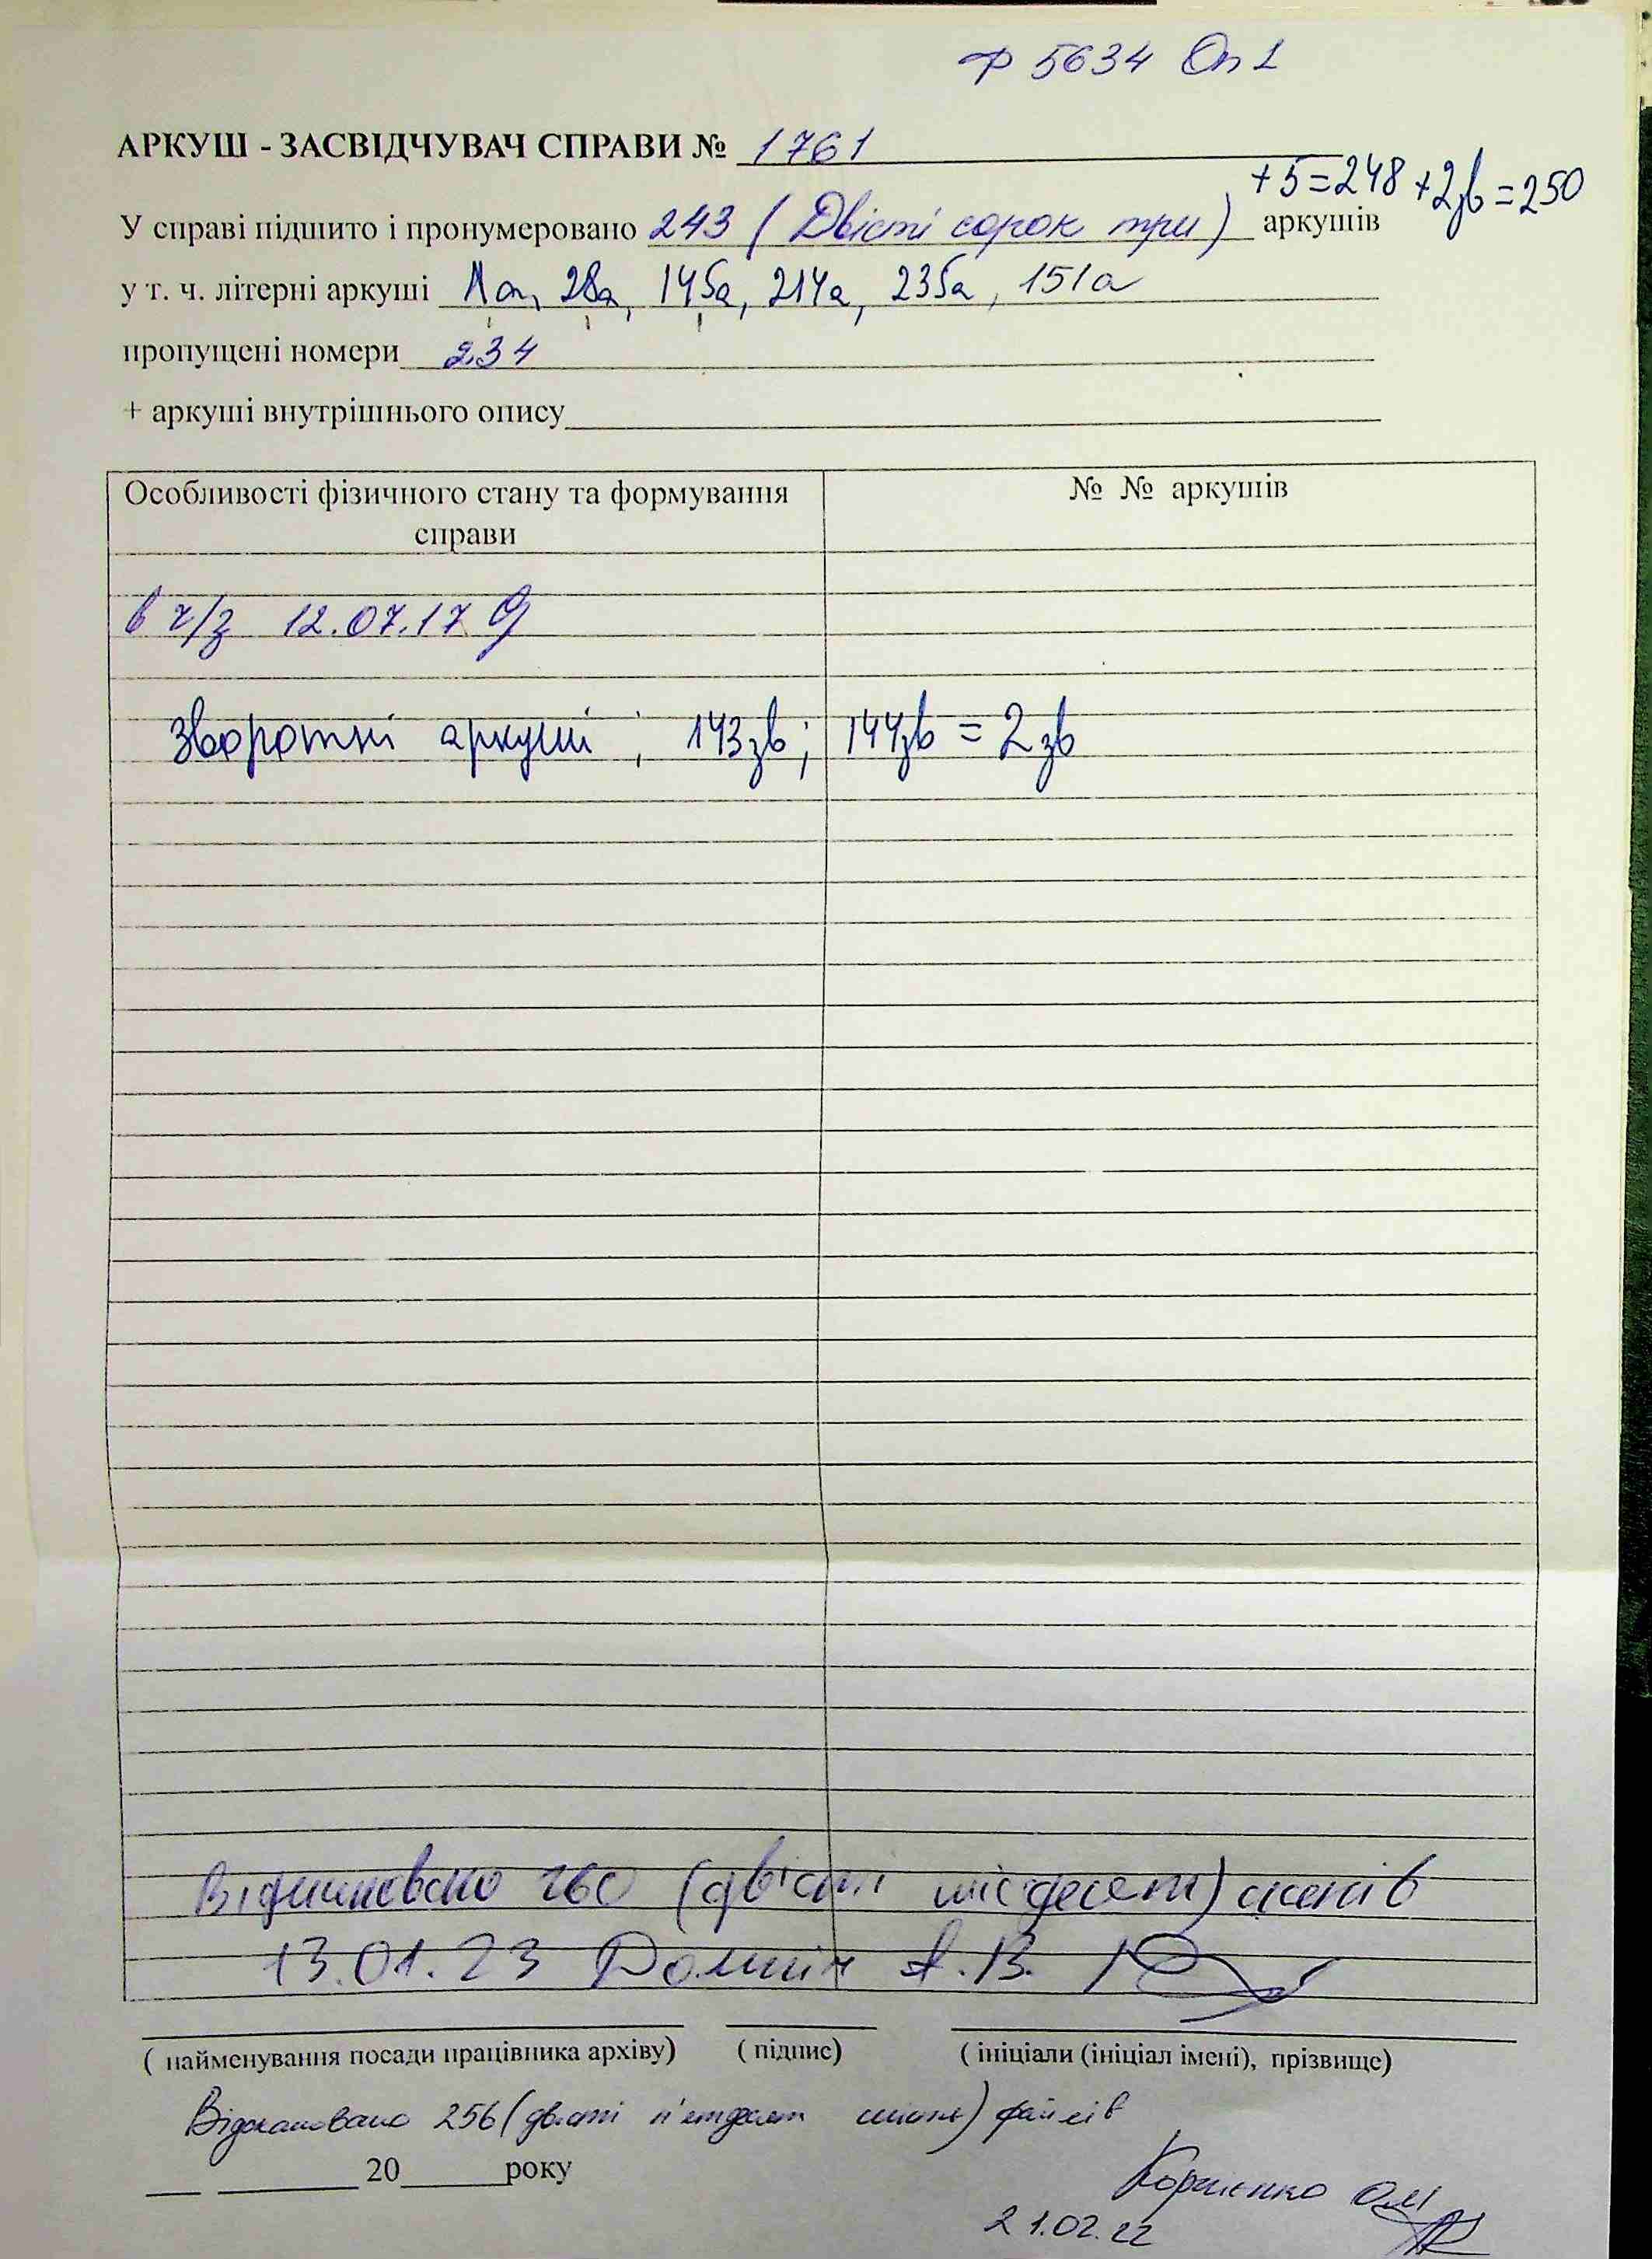 ф 5634 Оп 1
АРКУШ - ЗАСВІДЧУВАЧ СПРАВИ № 1761
+5=248 +2зв=250
У справі підшито і пронумеровано 243 (Двісті сорок три) аркушів
у т. ч. літерні аркуші 28а, 145а, 214а, 235а, 151а
пропущені номери 234
+ аркуші внутрішнього опису
Особливості фізичного стану та формування справи
№ № аркушів
в ч/з 12.07.17
Зворотні аркуші: 143зв; 144зв = 2зв
Відскановано 260 (двісті шістдесят) скенів
13.01.23 А.В.
( найменування посади працівника архіву) ( підпис) ( ініціали (ініціал імені), прізвище)
Відскановано 256 (двісті п'ятдесят шість) файлів
20 року
Корнієнко О.М
21.02.22